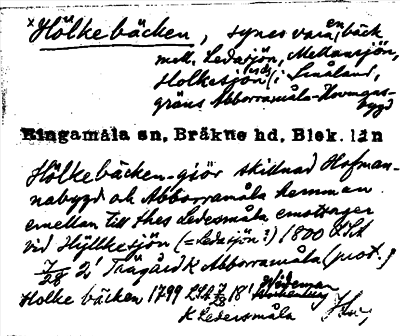 × Hölkebäcken, synes vara en bäck
mell. Ledasjön, Mellansjön,
Holkesjön i Småland,
gräns Abborramåla-Hovmans-
bygd
Ringamåla sn, Bräkne hd, Blek. län
Hölkebäcken giör skillnad Hofman-
nabygd och Abborramåla hemman
emellan till thes Ledesmåla emottager
vid Hyllkesjön (= Ledasjön?) 1800 LSA
7/28 2' Trägård K Abborramåla (prot.)
Holke bäcken 1799 LSA 7/28 18'
K Ledersmåla